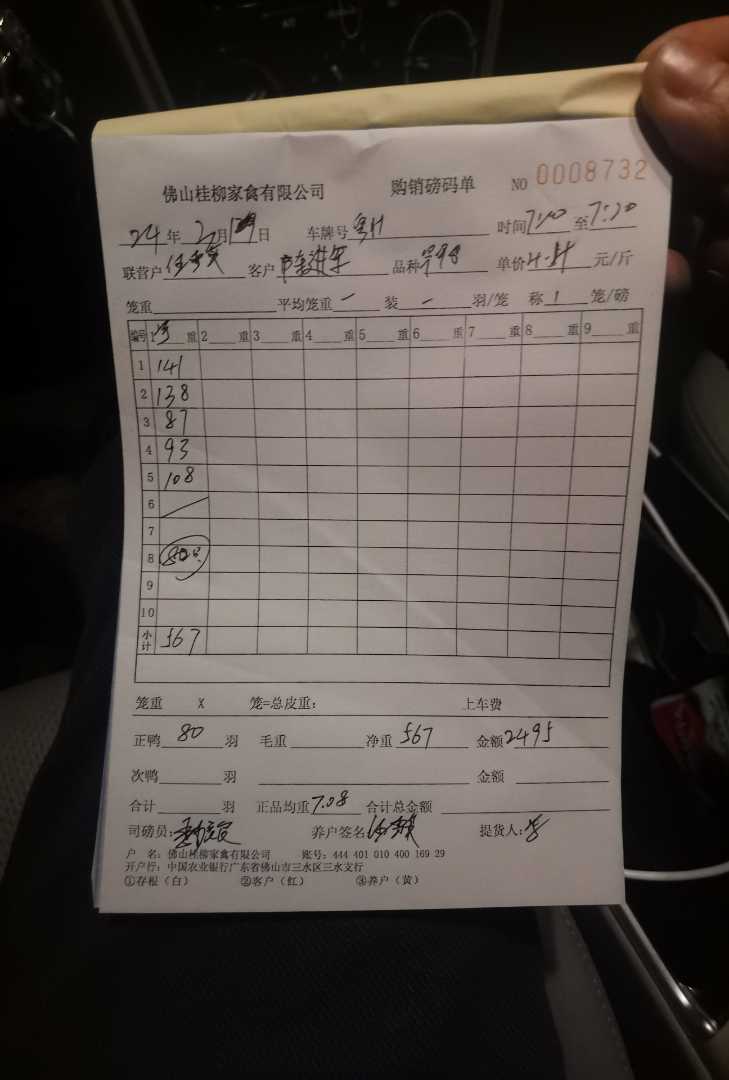 佛山桂柳家禽有限公司 购销磅码单 NO 0008732
24 年 月 日 车牌号 粤H 时间 7:00 至 7:20
联营户 客户 品种 单价 4.4 元/斤
笼重 平均笼重 一 装 一 羽/笼 称 1 笼/磅
编号 1 重 2 重 3 重 4 重 5 重 6 重 7 重 8 重 9 重
1 141
2 138
3 87
4 93
5 108
6
7
8 80只
9
10
小计 567
笼重 X 笼=总皮重: 上车费
正鸭 80 羽 毛重 净重 567 金额 2495
次鸭 羽 金额
合计 羽 正品均重 7.08 合计总金额
司磅员: 养户签名 提货人:
户 名: 佛山桂柳家禽有限公司 账号: 444 401 010 400 169 29
开户行: 中国农业银行广东省佛山市三水区三水支行
①存根(白) ②客户(红) ③养户(黄)